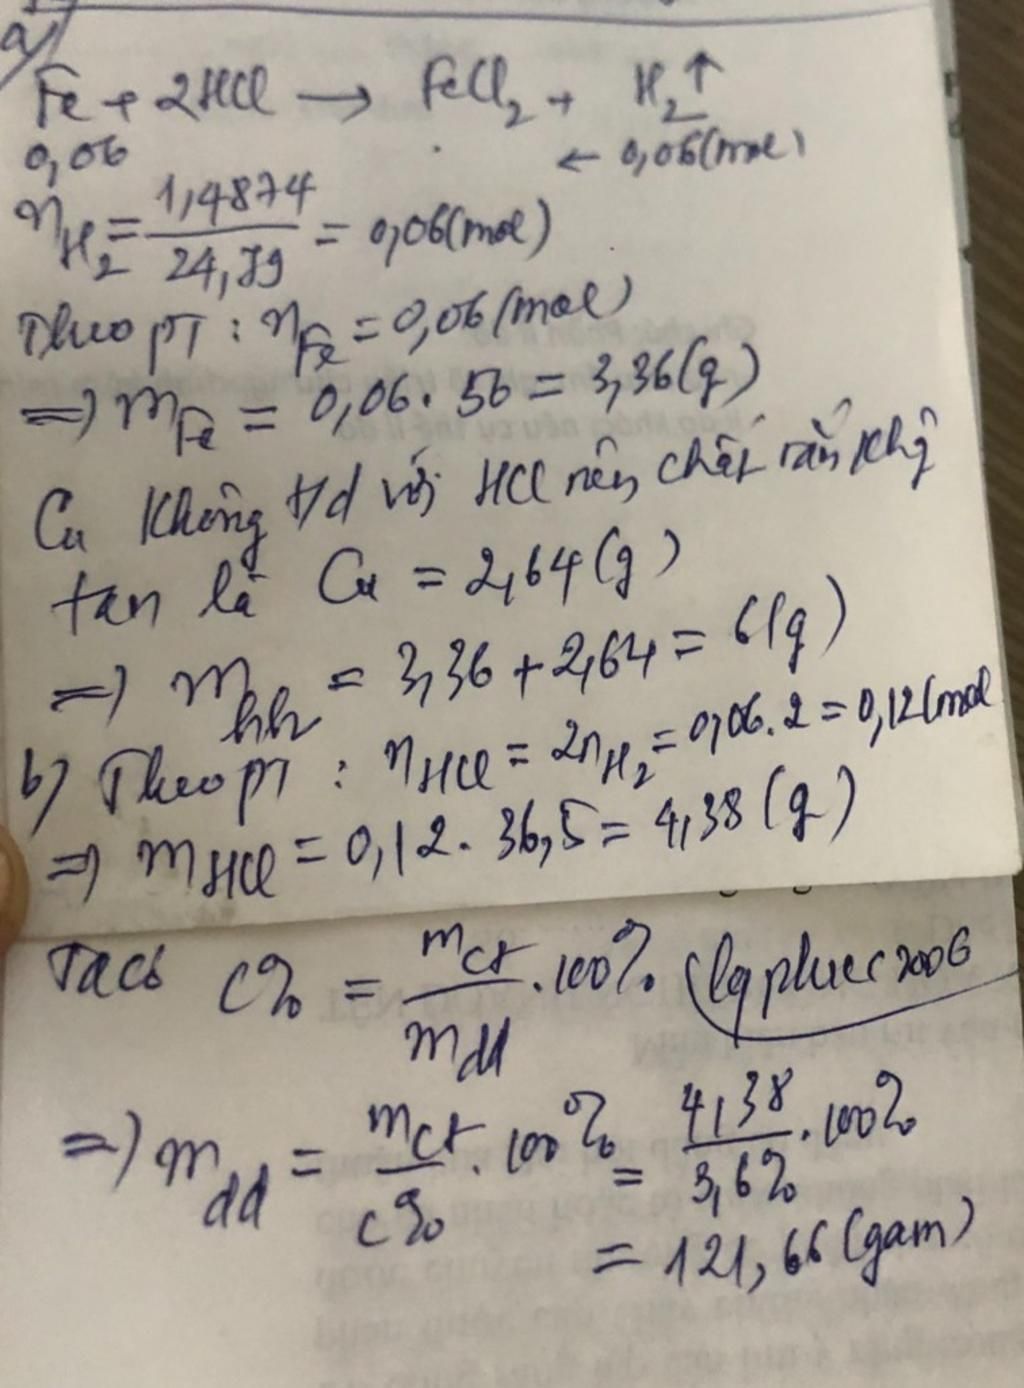 a)
Fe + 2HCl → FeCl₂ + H₂↑
0,06 ← 0,06(mol)
n_H₂ = 1,4874 / 24,79 = 0,06(mol)
Theo pT : n_Fe = 0,06(mol)
=) m_Fe = 0,06. 56 = 3,36(g)
Cu không t/d với HCl nên chất rắn khg
tan là Cu = 2,64(g)
=) m_hh = 3,36 + 2,64 = 6(g)
b) Theo pT : n_HCl = 2n_H₂ = 0,06. 2 = 0,12(mol
=) m_HCl = 0,12. 36,5 = 4,38(g)
Ta có C% = m_ct / m_dd .100%
=) m_dd = m_ct / C% . 100% = 4,38 / 3,6% .100%
= 121,66 (gam)